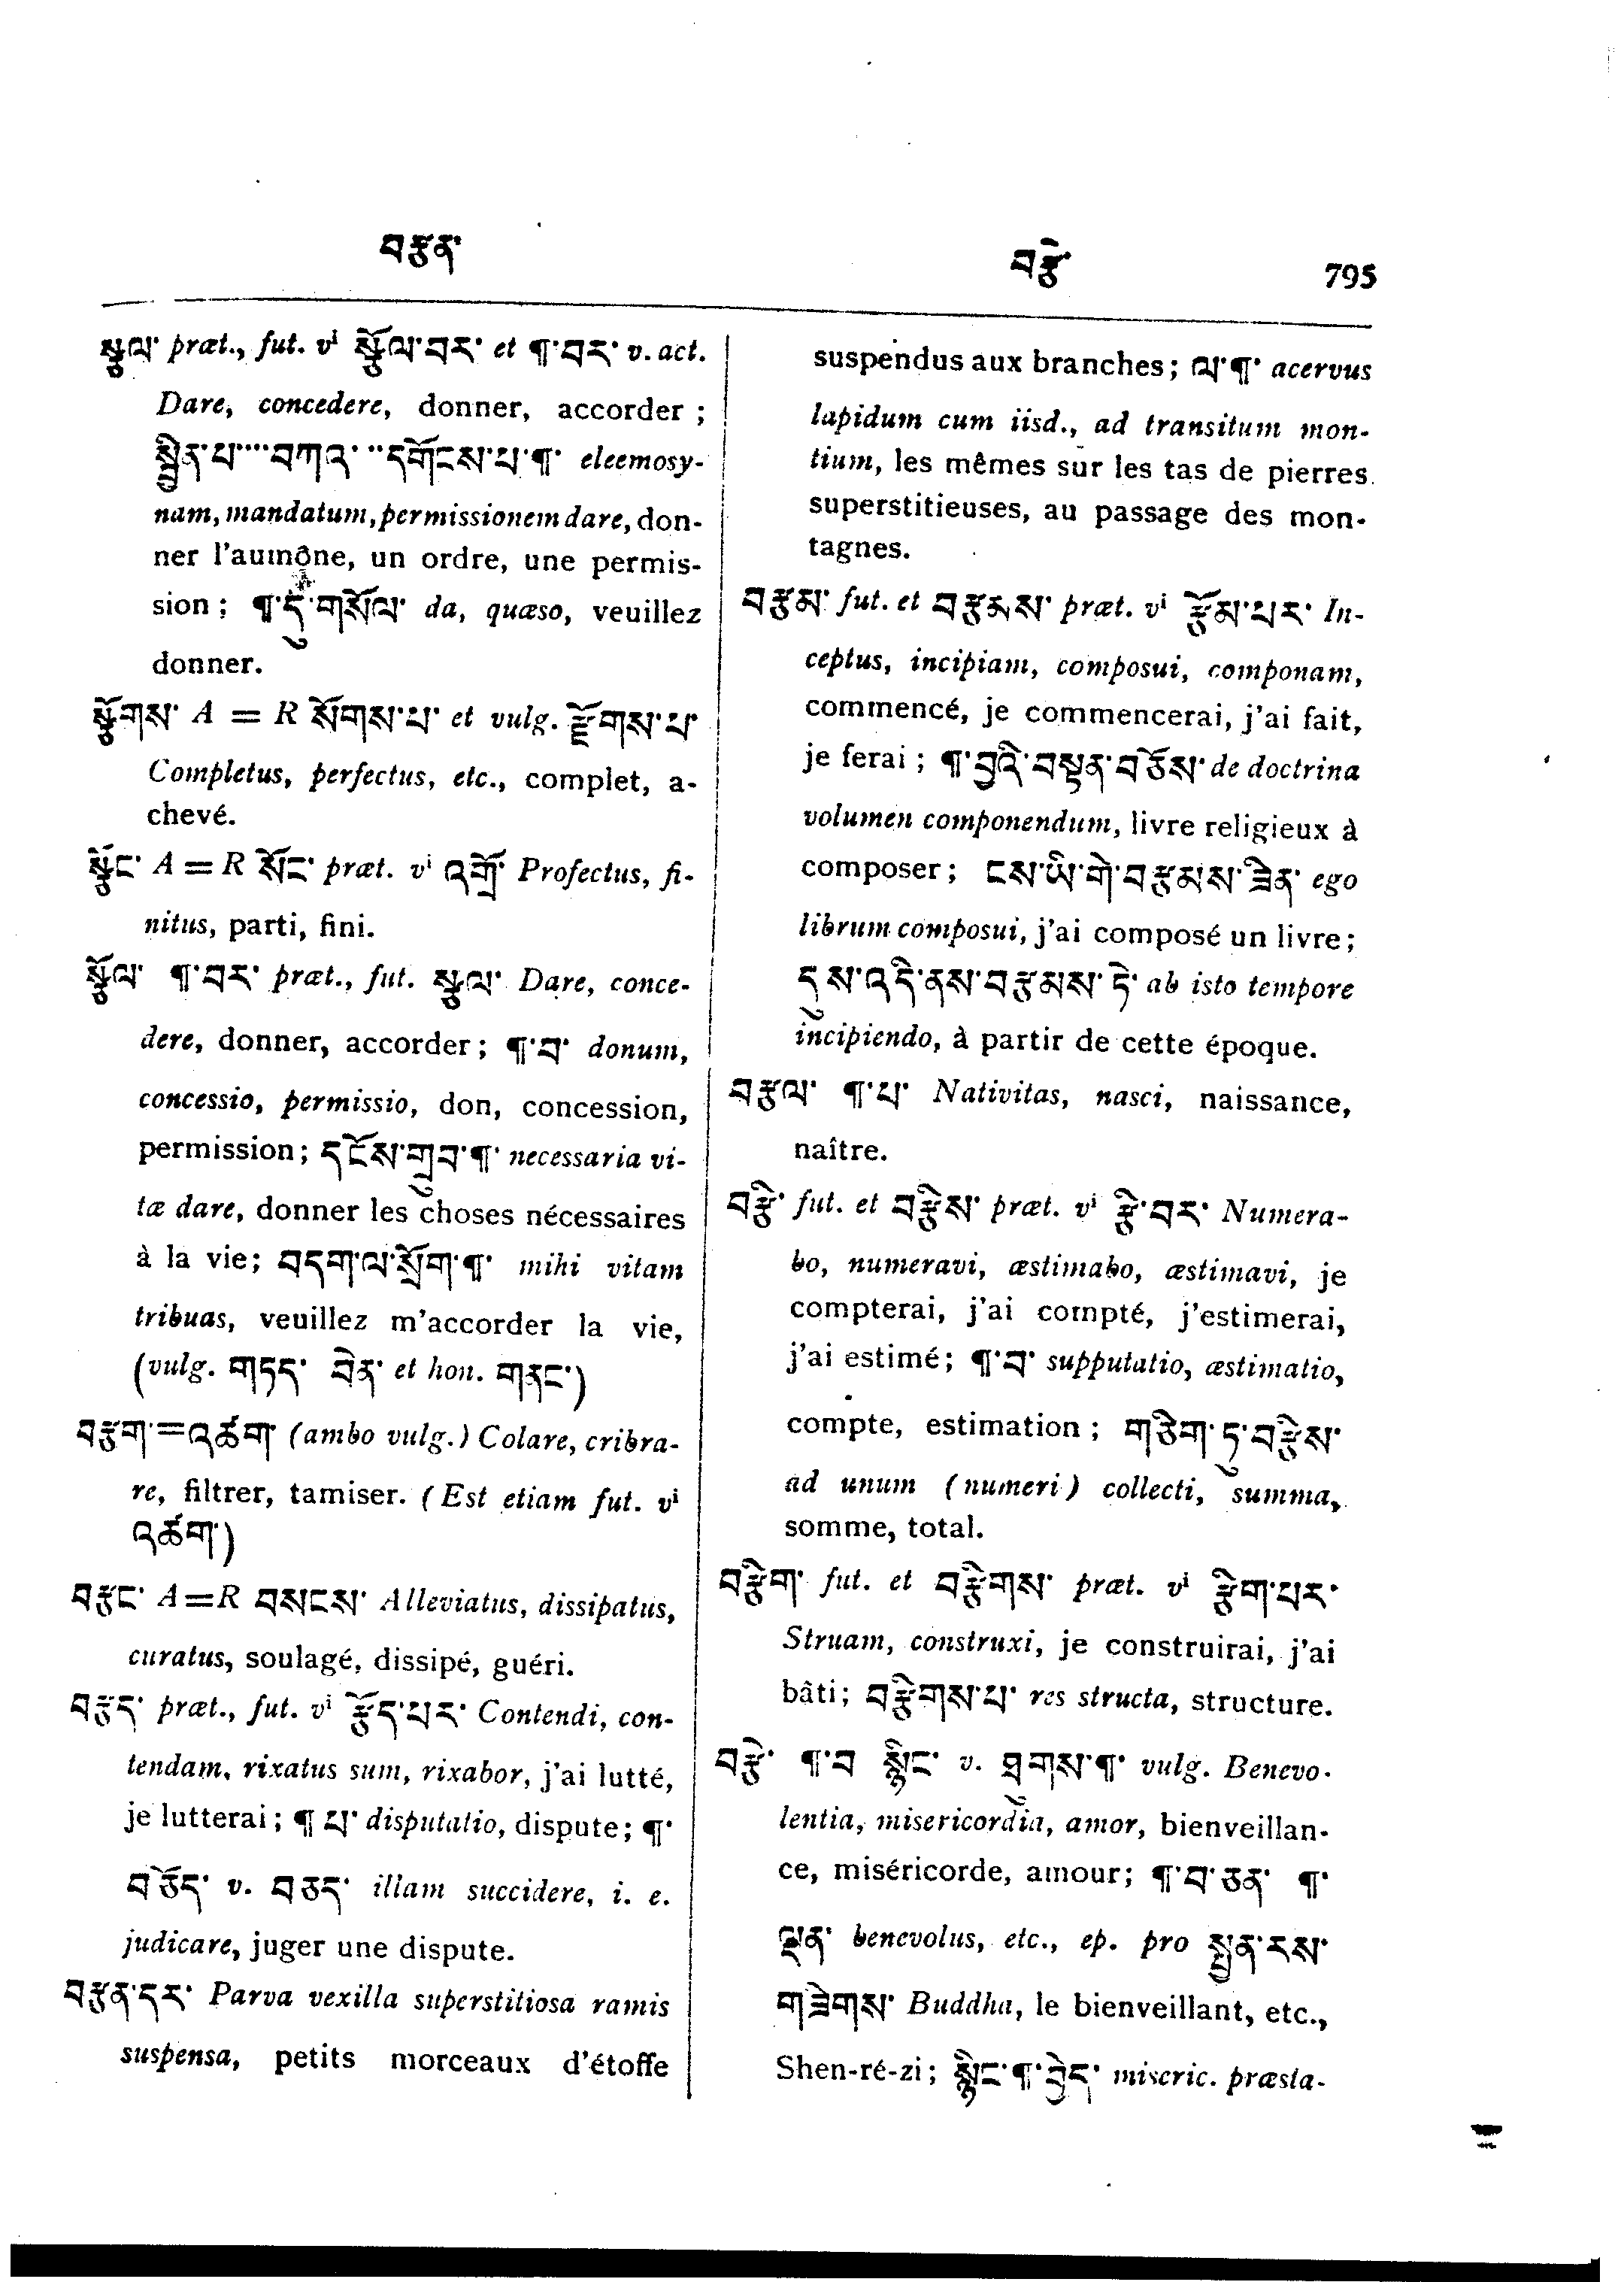 བརྩན་
བརྩེ་
795
སྩལ་ præt., fut. vⁱ སྩོལ་བར་ et ¶་བར་ v. act.
Dare, concedere, donner, accorder ;
སྦྱིན་པ་་་་བཀའ་་་དགོངས་པ་¶་ eleemosy-
nam, mandatum, permissionem dare, don-
ner l'aumône, un ordre, une permis-
sion ; ¶་དུ་གསོལ་ da, quæso, veuillez
donner.
སྩོགས་ A = R སོགས་པ་ et vulg. རྫོགས་པ་
Completus, perfectus, etc., complet, a-
chevé.
སྩོང་ A = R སོང་ præt. vⁱ འགྲོ་ Profectus, fi-
nitus, parti, fini.
སྩོལ་ ¶་བར་ præt., fut. སྩལ་ Dare, conce-
dere, donner, accorder ; ¶་བ་ donum,
concessio, permissio, don, concession,
permission ; དངོས་གྲུབ་¶་ necessaria vi-
tæ dare, donner les choses nécessaires
à la vie; བདག་ལ་སྲོག་¶་ mihi vitam
tribuas, veuillez m'accorder la vie,
(vulg. གཏད་ བིན་ et hon. གནང་)
བརྩག་=འཚག་ (ambo vulg.) Colare, cribra-
re, filtrer, tamiser. (Est etiam fut. vⁱ
འཚག་)
བརྩང་ A=R བསངས་ Alleviatus, dissipatus,
curatus, soulagé, dissipé, guéri.
བརྩད་ præt., fut. vⁱ རྩོད་པར་ Contendi, con-
tendam, rixatus sum, rixabor, j'ai lutté,
je lutterai ; ¶ པ་ disputatio, dispute ; ¶་
བཅོད་ v. བཅད་ illam succidere, i. e.
judicare, juger une dispute.
བརྩན་དར་ Parva vexilla superstitiosa ramis
suspensa, petits morceaux d'étoffe
suspendus aux branches ; ལ་¶་ acervus
lapidum cum iisd., ad transitum mon-
tium, les mêmes sur les tas de pierres
superstitieuses, au passage des mon-
tagnes.
བརྩམ་ fut. et བརྩམས་ præt. vⁱ རྩོམ་པར་ In-
ceptus, incipiam, composui, componam,
commencé, je commencerai, j'ai fait,
je ferai ; ¶་བྱའི་བསྟན་བཅོས་ de doctrina
volumen componendum, livre religieux à
composer ; ངས་ཡི་གེ་བརྩམས་ཟིན་ ego
librum composui, j'ai composé un livre ;
དུས་འདི་ནས་བརྩམས་ཏེ་ ab isto tempore
incipiendo, à partir de cette époque.
བརྩལ་ ¶་པ་ Nativitas, nasci, naissance,
naître.
བརྩི་ fut. et བརྩིས་ præt. vⁱ རྩི་བར་ Numera-
bo, numeravi, æstimabo, æstimavi, je
compterai, j'ai compté, j'estimerai,
j'ai estimé ; ¶་བ་ supputatio, æstimatio,
compte, estimation ; གཅིག་ཏུ་བརྩིས་
ad unum (numeri) collecti, summa,
somme, total.
བརྩིག་ fut. et བརྩིགས་ præt. vⁱ རྩིག་པར་
Struam, construxi, je construirai, j'ai
bâti ; བརྩིགས་པ་ res structa, structure.
བརྩེ་ ¶་བ སྙིང་ v. ཐུགས་¶་ vulg. Benevo-
lentia, misericordia, amor, bienveillan-
ce, miséricorde, amour ; ¶་བ་ཅན་ ¶་
ལྡན་ benevolus, etc., ep. pro སྤྱན་རས་
གཟིགས་ Buddha, le bienveillant, etc.,
Shen-ré-zi ; སྙིང་¶་བྱེད་ miseric. præsta-